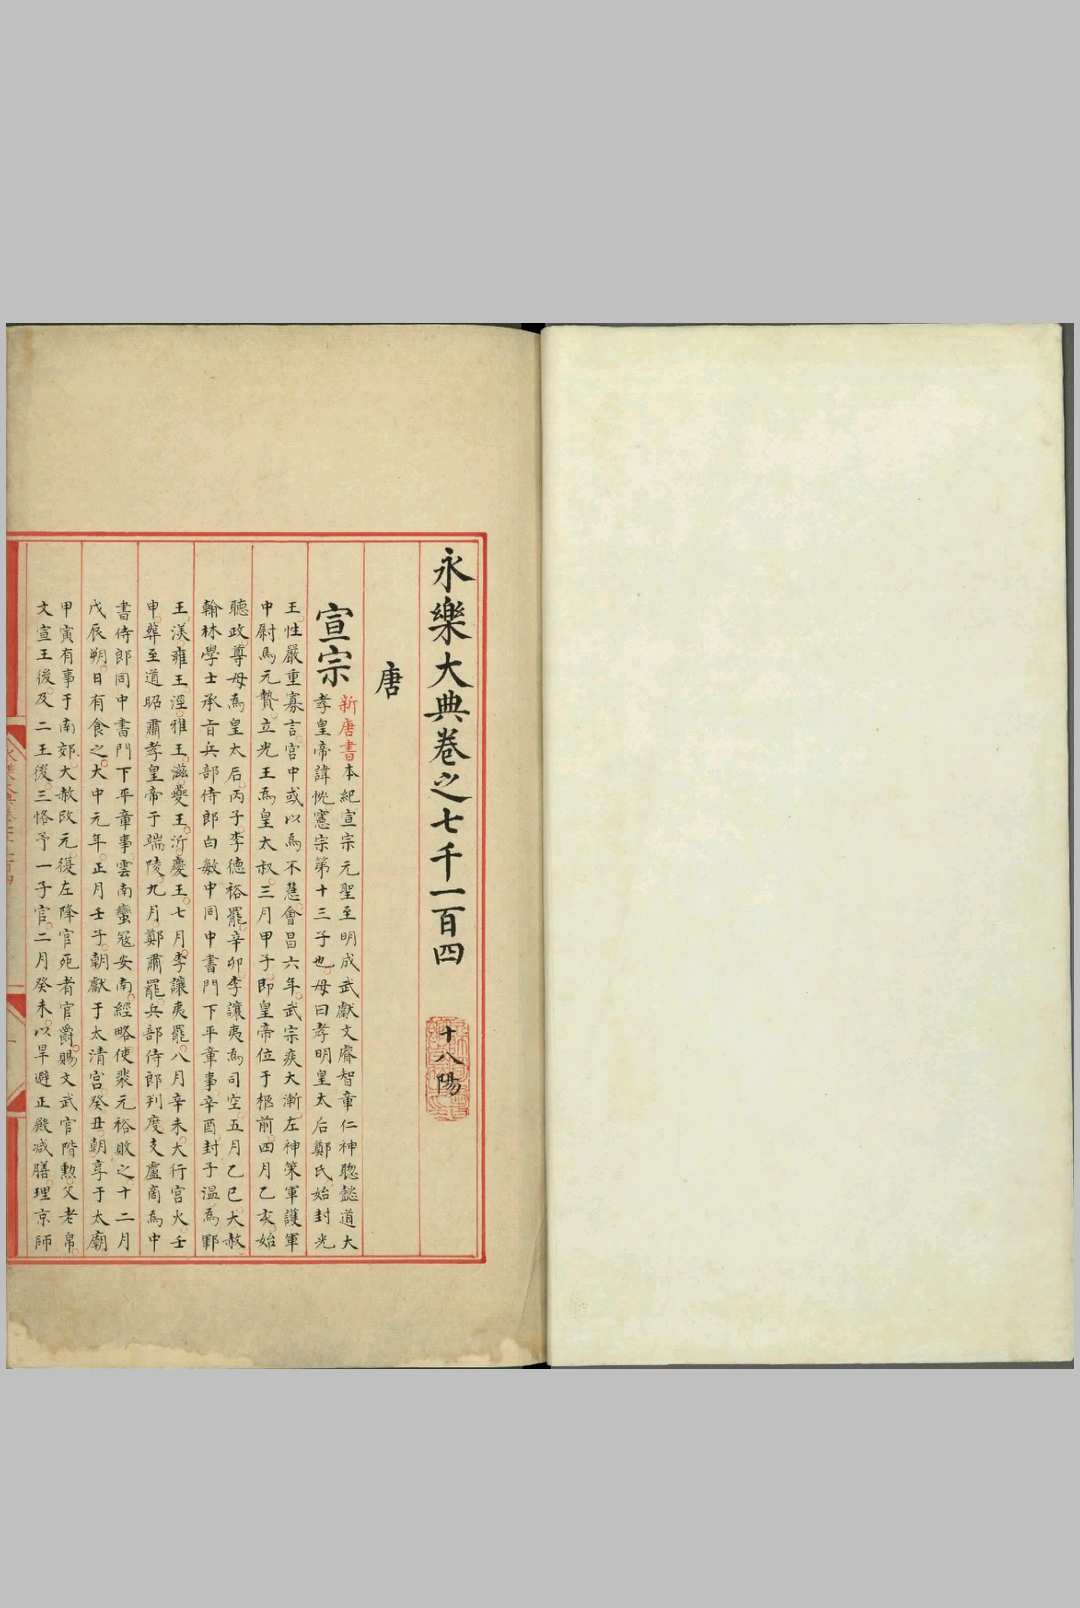 永樂大典卷之七千一百四 十八陽
唐
宣宗
新唐書本紀宣宗元聖至明成武獻文睿智章仁神聰懿道大
孝皇帝諱忱憲宗第十三子也母曰孝明皇太后鄭氏始封光
王性嚴重寡言宮中或以為不慧會昌六年武宗疾大漸左神策軍護軍
中尉馬元贄立光王為皇太叔三月甲子即皇帝位于柩前四月乙亥始
聽政尊母為皇太后丙子李德裕罷辛卯李讓夷為司空五月乙巳大赦
翰林學士承旨兵部侍郎白敏中同中書門下平章事辛酉封子溫為鄆
王渼雍王涇雅王滋夔王沂慶王七月李讓夷罷八月辛未大行宮火壬
申葬至道昭肅孝皇帝于端陵九月鄭肅罷兵部侍郎判度支盧商為中
書侍郎同中書門下平章事雲南蠻寇安南經略使裴元裕敗之十二月
戊辰朔日有食之大中元年正月壬子朝獻于太清宮癸丑朝享于太廟
甲寅有事于南郊大赦改元復左降官死者官爵賜文武官階勲父老帛
文宣王後及二王後三恪予一子官二月癸未以旱避正殿減膳理京師